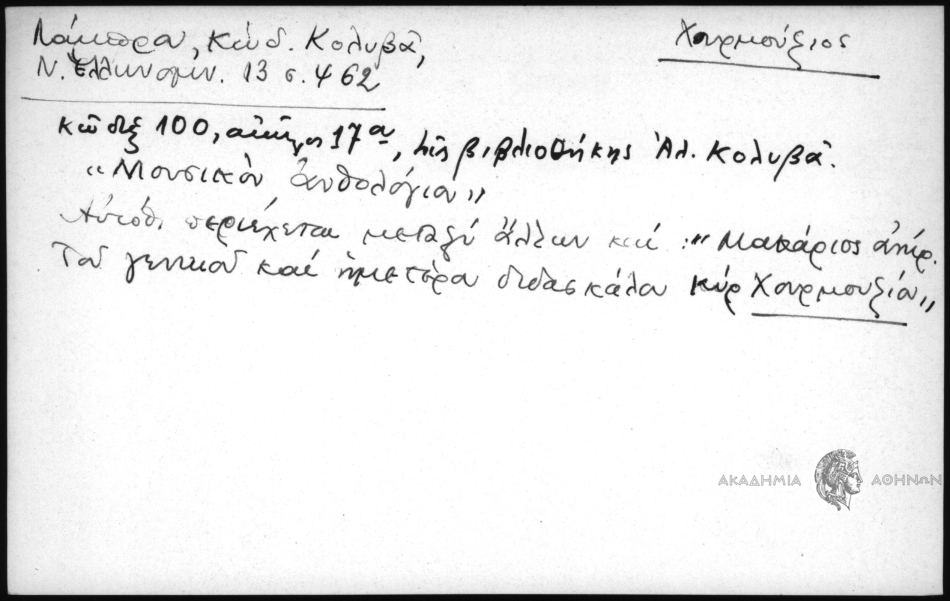 Λάμπρου, Κώδ. Κολυβᾶ,
Χουρμούζιος
Ν. Ἑλληνομν. 13 σ. 462
κῶδιξ 100, 17ου, τῆς βιβλιοθήκης Ἀλ. Κολυβᾶ.
«Μουσικὸν ἀνθολόγιον»
Αὐτόθι περιέχεται μεταξὺ ἄλλων καὶ : «Μακάριος ἀνήρ.
τοῦ γενικοῦ καὶ ἡμετέρου διδασκάλου κὺρ Χουρμουζίου»
ΑΚΑΔΗΜΙΑ ΑΘΗΝΩΝ